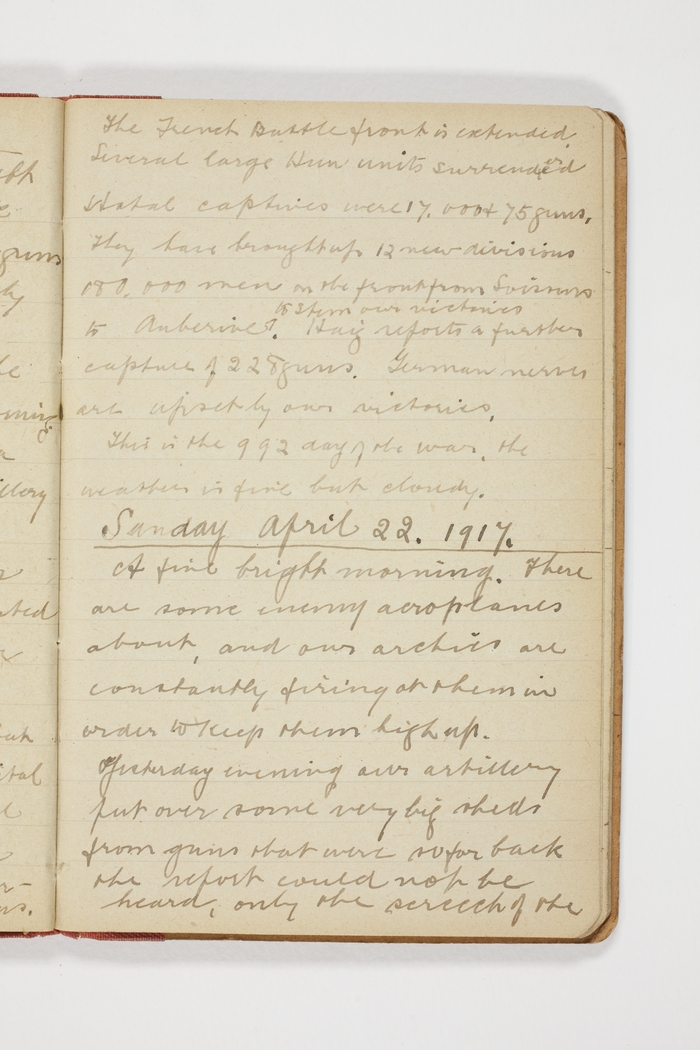 The French Battle front is extended.
Several large Hun units surrender'd
total captives were 17.000 & 75 guns,
They have brought up 12 new divisions
180.000 men on the front from Soissons
to stem our victories
to Auberive. Haig reports a further
capture of 228 guns. German nerves
are upset by our victories.
This is the 992 day of the war, the
weather is fine but cloudy.
Sunday April 22. 1917.
A fine bright morning. There
are some enemy aeroplanes
about, and our archies are
constantly firing at them in
order to keep them high up.
Yesterday evening our artillery
put over some very big shells
from guns that were so far back
the report could not be
heard, only the screech of the